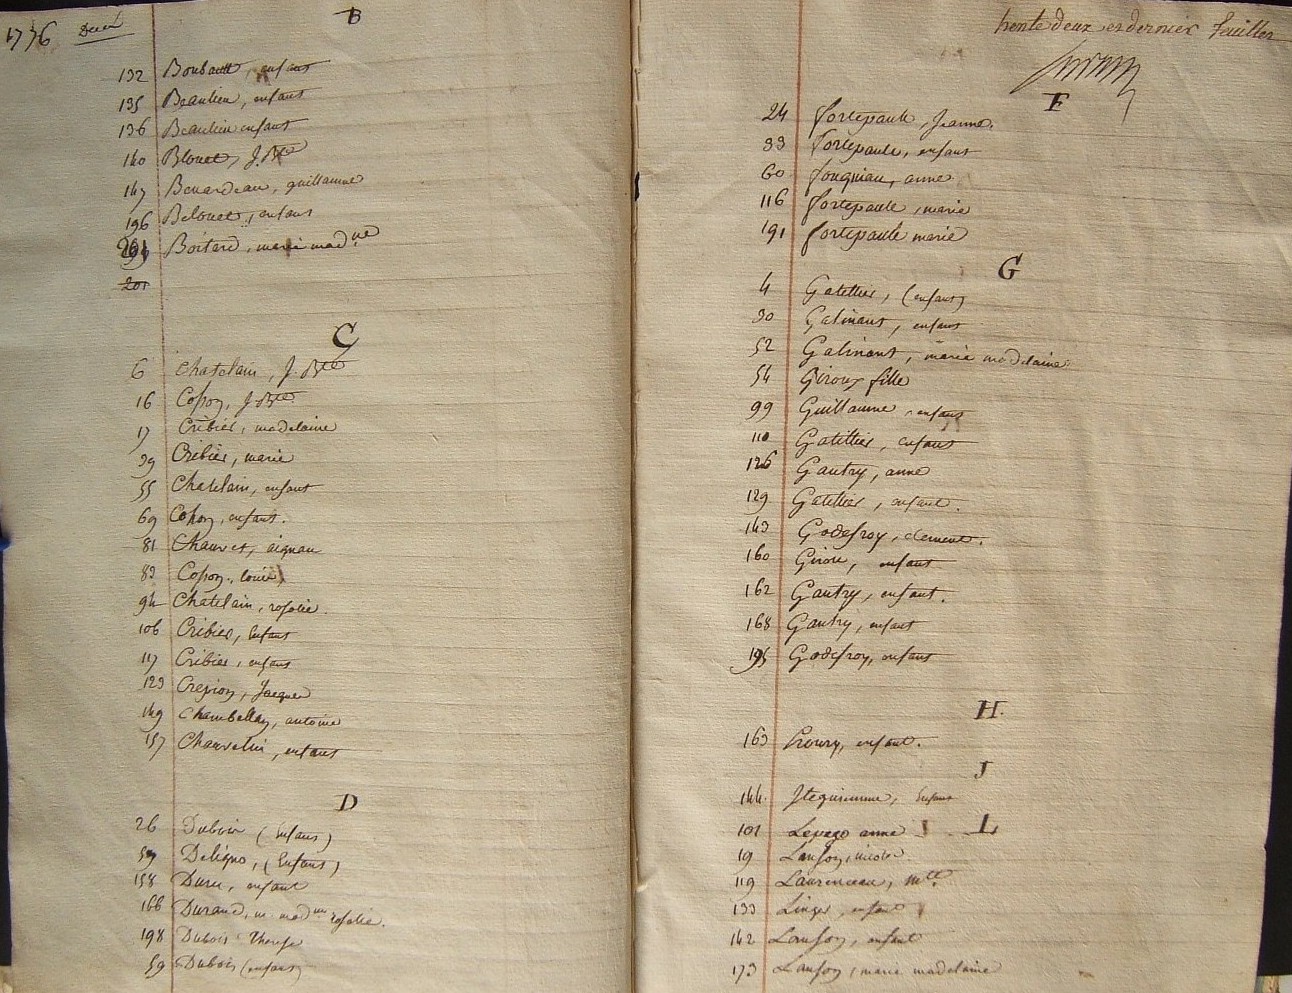 1776 Deces
B
132 Boubault, enfant
135 Beaulieu, enfant
136 Beaulieu enfant
140 Blouet, J. Bte
147 Benardeau, guillaume
196 Belouet, enfant
Boitard, marie madne
201
C
6 Chatelain, J. Bte
16 Cosson, J. Bte
17 Cribier, madelaine
39 Cribier, marie
55 Chatelain, enfant
69 enfant.
81 Chauvet, aignan
83 Cosson, louis
94 Chatelain, rosalie.
106 Cribier, Enfant
117 Cribier, enfant
123 Crepion, Jacques
149 Chambellan, antoine
157 Chauvelin, enfant
D
26 Dubois (Enfant)
59 Deligno, (Enfant)
158 Duru, enfant
166 Durand, m. madne rosalie.
198 Dubois Therese
59 Dubois (enfant)
trente deux et dernier feuillet
F
24 fortepaule, Jeanne.
33 fortepaule, enfant
60 fougniau, anne
116 fortepaule, marie
191 fortepaule marie
G
4 Gatellier, (enfant)
30 Galinant, enfant
52 Galinant, marie madelaine
54 Giroux fille
99 Guillaume, enfant
110 Gatellier, enfant
126 Gautry, anne
129 Gatellier, enfant.
143 Godefroy, clement.
160 Girou, enfant
162 Gautry, enfant.
168 Gautry, enfant
195 Godefroy, enfant
H.
163 houry, enfant.
J
144. enfant
L
101 anne
19 Lanson, nicolas.
119 Laurenceau, mlle
133 Linger, enfant
142 Lanson, enfant
173 Lanson, marie madelaine